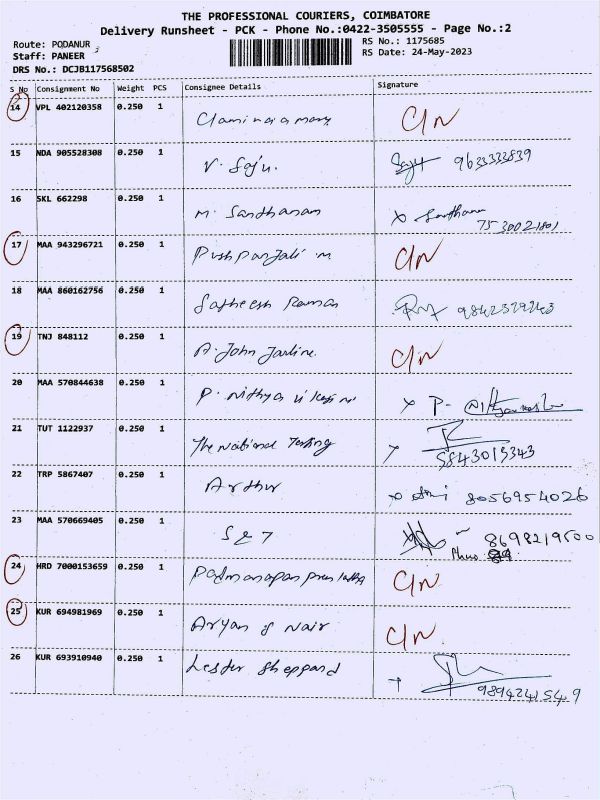 THE PROFESSIONAL COURIERS, COIMBATORE
Delivery Runsheet - PCK - Phone No.:0422-3505555 - Page No.:2
Route: PODANUR
Staff: PANEER
DRS No.: DCJB117568502
RS No.: 1175685
RS Date: 24-May-2023
S No Consignment No Weight PCS Consignee Details Signature
14 VPL 402120358 0.250 1 C/N
15 NDA 905528308 0.250 1 V. Saju. Saju 9633333839
16 SKL 662298 0.250 1 M. Sandhanam x Santhana
7530021801
17 MAA 943296721 0.250 1 Pushpanjali M C/N
18 MAA 860162756 0.250 1 Satheesh Raman 9842329243
19 TNJ 848112 0.250 1 A. John C/N
20 MAA 570844638 0.250 1 P. Nithya x P-
21 TUT 1122937 0.250 1 The National Testing x
9843015343
22 TRP 5867407 0.250 1 Arthur x 8056954026
23 MAA 570669405 0.250 1 S & 7 8698219500
24 HRD 7000153659 0.250 1 C/N
25 KUR 694981969 0.250 1 Aryan S Nair C/N
26 KUR 693910940 0.250 1 Lester Sheppard
9894241549